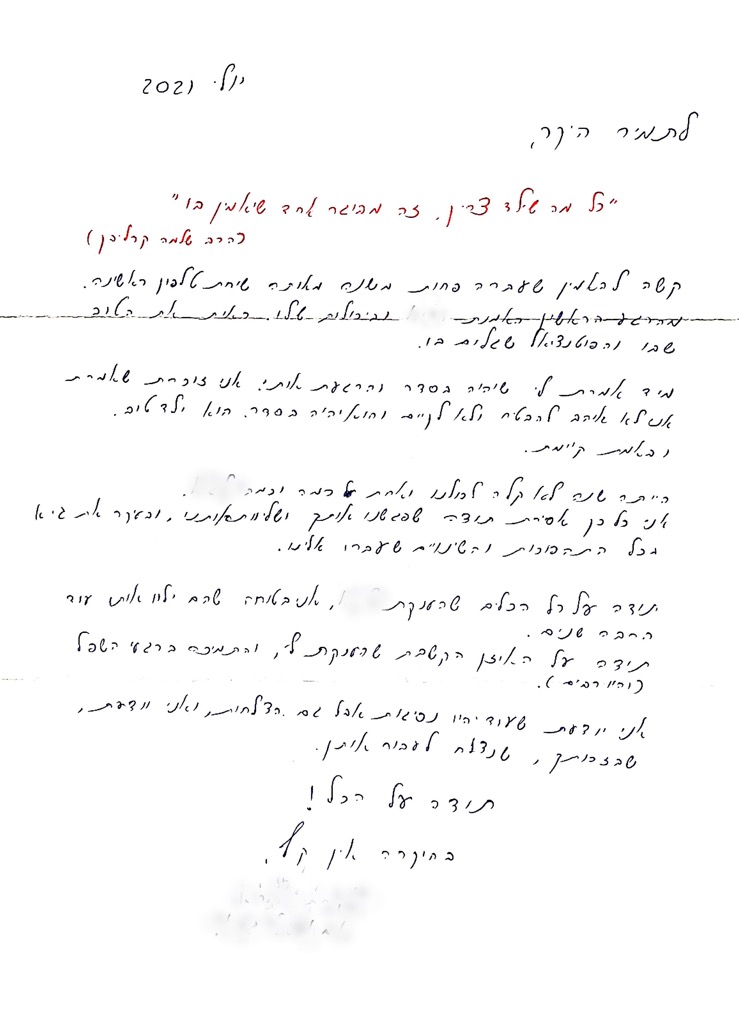 יולי 2021
לתמיר היקר,
"כל מה שילד צריך, זה מבוגר אחד שיאמין בו"
(הרב שלמה קרליבך)
קשה להאמין שעברה פחות משנה מאותה שיחת טלפון ראשונה.
מהרגע הראשון האמנת וביכולות שלו. ראית את הטוב
שבו והפוטנציאל שגלום בו.
מיד אמרת לי שיהיה בסדר והרגעת אותי. אני זוכרת שאמרת
אני לא אוהב להבטיח ולא לקיים והוא יהיה בסדר. הוא ילד טוב.
ובאמת קיימת.
הייתה שנה לא קלה לכולנו ואחת על כמה וכמה
אני כל כך אסירת תודה שפגשנו אותך ושליווית אותנו, ובעיקר את
בכל התהפוכות והשינויים שעברו אלינו.
תודה על כל הכלים שהענקת , אני בטוחה שהם ילוו אותו עוד
הרבה שנים.
תודה על האוזן הקשבת שהענקת לי, והתמיכה ברגעי השפל
(והיו רבים).
אני יודעת שעוד יהיו נסיגות אבל גם הצלחות, ואני יודעת,
שבזכותך, שנצלח לעבור אותן.
תודה על הכל!
בהוקרה אין קץ,